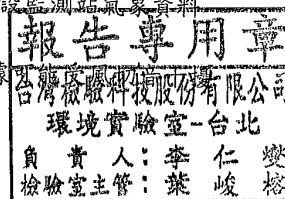 設監測站氣象資料
報告專用章
台灣檢驗科技股份有限公司
環境實驗室-台北
負責人：李仁燮
檢驗室主管：葉峻榕